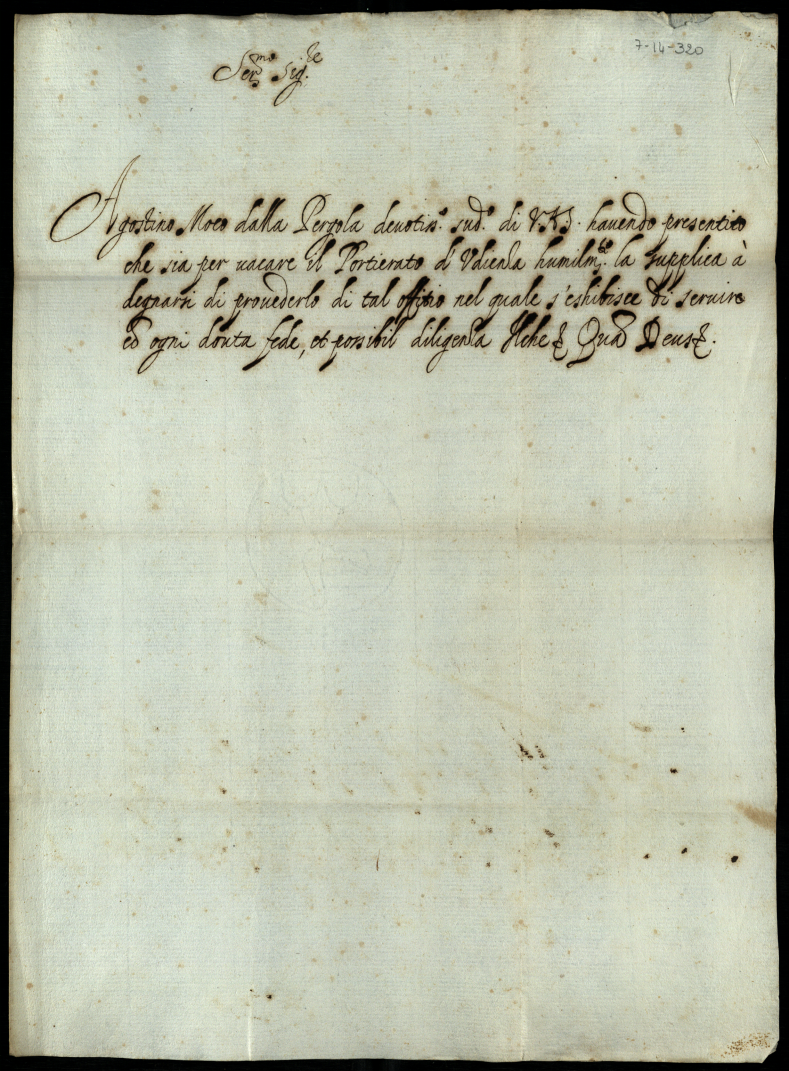 7-14-320
Ser.mo Sig.re
Agostino Moco dalla Pergola deuotis.o sud.o di V.A.S. hauendo presentito
che sia per uacare il Portierato d'Vdienza humilm.te la supplica à
degnarsi di prouederlo di tal offitio nel quale s'eshibisce di seruire
cō ogni douta fede, et possibil diligenza Ilche Quā Deus